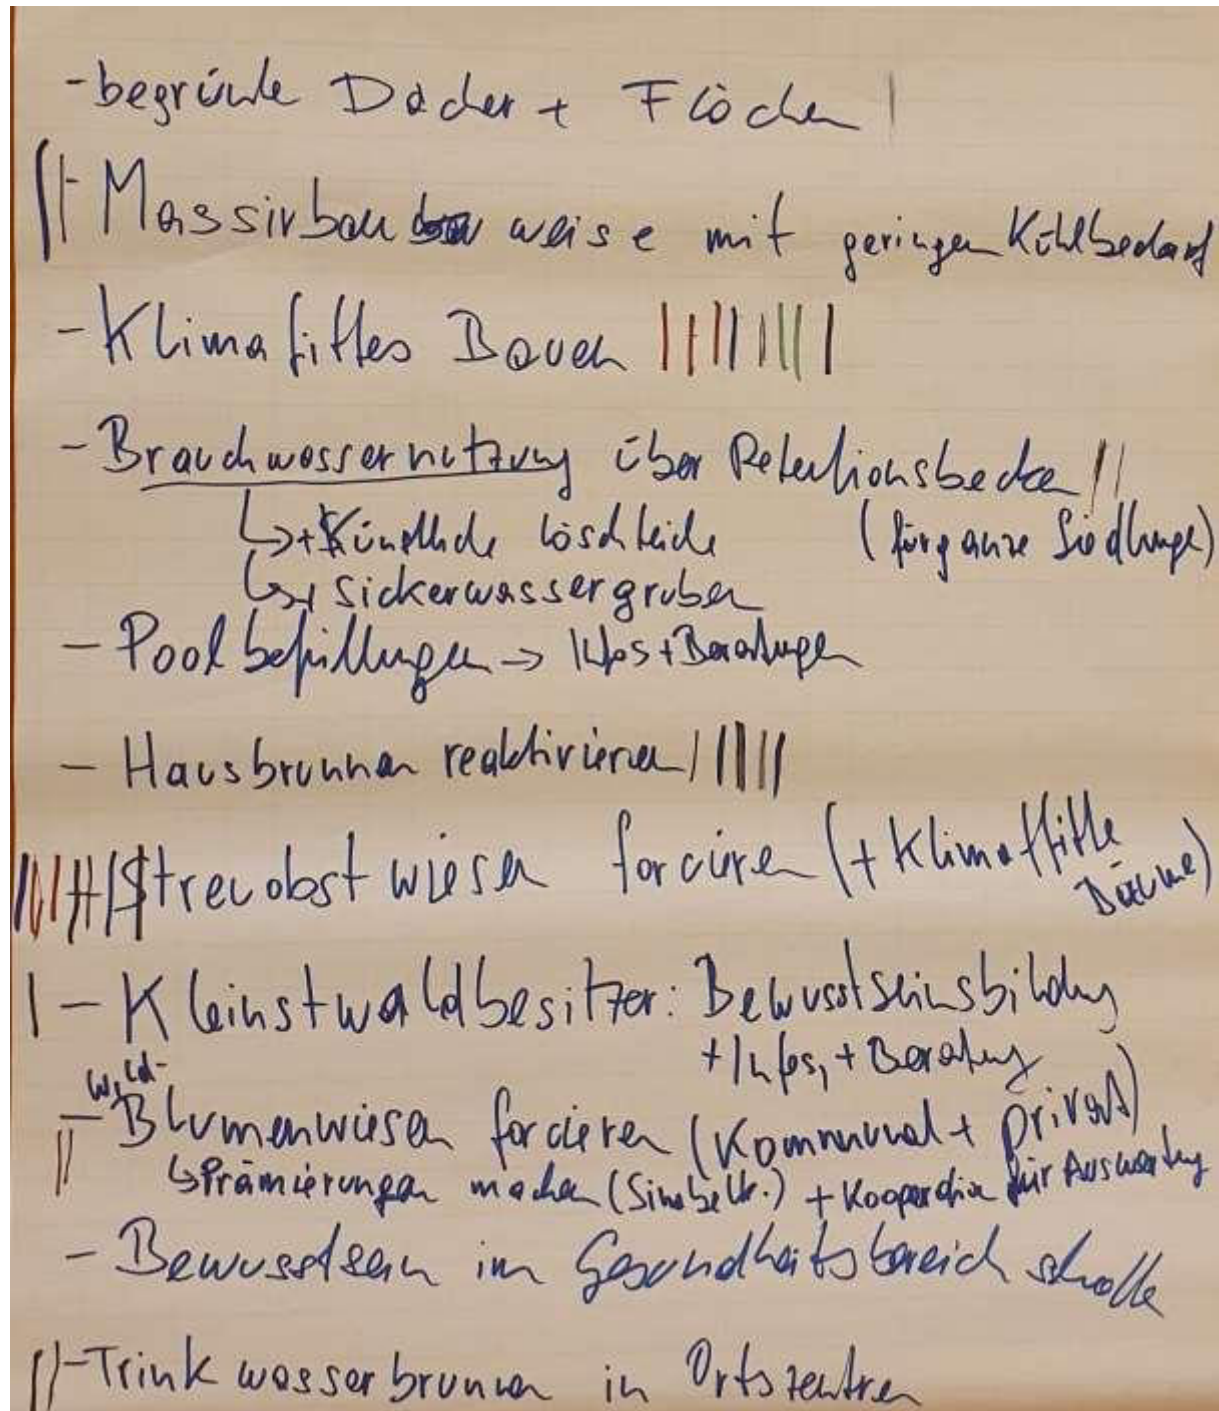 - begrünte Dächer + Flächen |
|| - Massivbauweise mit geringen Kühlbedarf
- Klimafittes Bauen |||||||||
- Brauchwassernutzung über Retentionsbecken ||
↳ + Künstliche Löschteiche (für ganze Siedlunge)
↳ + Sickerwassergruben
- Poolbefüllungen → Infos + Beratungen
- Hausbrunnen reaktivieren ||||||
Streuobstwiesen forcieren (+ Klimafitte
Bäume)
| - Kleinstwaldbesitzer: Bewusstseinsbildung
+ Infos, + Beratung
Wild-
- Blumenwiesen forcieren (Kommunal + privat)
|| ↳ Prämierungen machen + Kooperation für Auswertung
- Bewusstsein im Gesundheitsbereich
|| - Trinkwasserbrunnen in Ortszentren